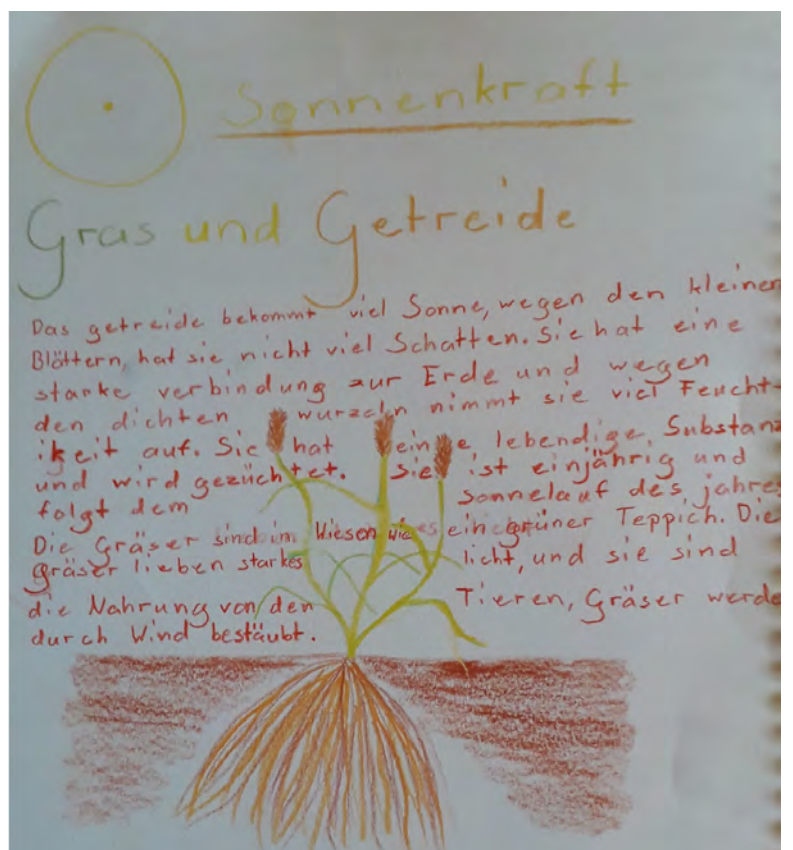 Sonnenkraft
Gras und Getreide
Das getreide bekommt viel Sonne, wegen den kleinen
Blättern, hat sie nicht viel Schatten. Sie hat eine
starke verbindung zur Erde und wegen
den dichten wurzeln nimmt sie viel Feucht-
ikeit auf. Sie hat eine lebendige, Substanz
und wird gezüchtet. Sie ist einjährig und
folgt dem Sonnelauf des jahres
Die Gräser sind im Wiesen wie ein grüner Teppich. Die
gräser lieben starkes licht, und sie sind
die Nahrung von den Tieren, Gräser werde
durch Wind bestäubt.